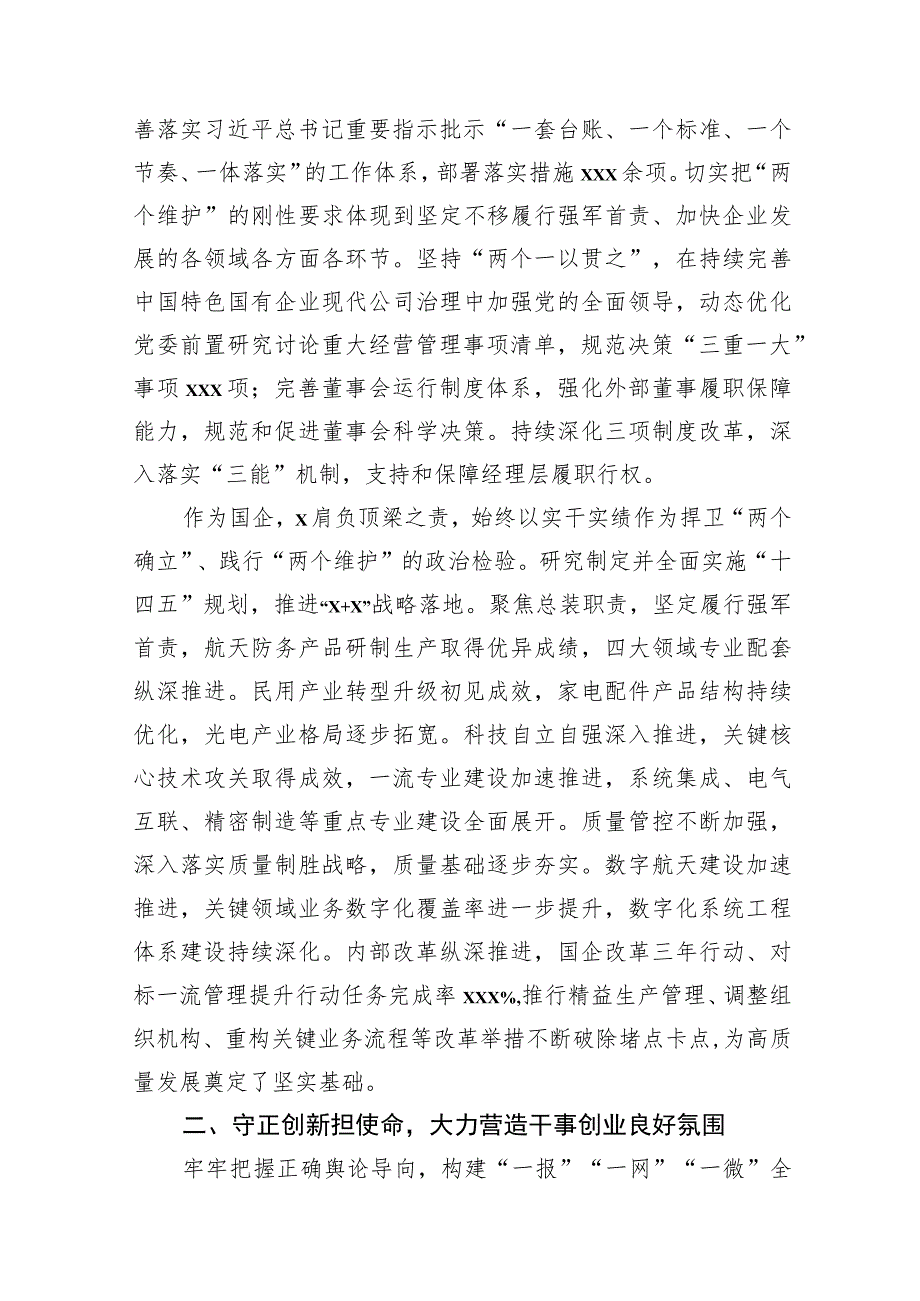 善落实习近平总书记重要指示批示“一套台账、一个标准、一个
节奏、一体落实”的工作体系，部署落实措施 XXX 余项。切实把“两
个维护”的刚性要求体现到坚定不移履行强军首责、加快企业发
展的各领域各方面各环节。坚持“两个一以贯之”，在持续完善
中国特色国有企业现代公司治理中加强党的全面领导，动态优化
党委前置研究讨论重大经营管理事项清单，规范决策“三重一大”
事项 XXX 项；完善董事会运行制度体系，强化外部董事履职保障
能力，规范和促进董事会科学决策。持续深化三项制度改革，深
入落实“三能”机制，支持和保障经理层履职行权。
作为国企，X 肩负顶梁之责，始终以实干实绩作为捍卫“两个
确立”、践行“两个维护”的政治检验。研究制定并全面实施“十
四五”规划，推进“X+X”战略落地。聚焦总装职责，坚定履行强军
首责，航天防务产品研制生产取得优异成绩，四大领域专业配套
纵深推进。民用产业转型升级初见成效，家电配件产品结构持续
优化，光电产业格局逐步拓宽。科技自立自强深入推进，关键核
心技术攻关取得成效，一流专业建设加速推进，系统集成、电气
互联、精密制造等重点专业建设全面展开。质量管控不断加强，
深入落实质量制胜战略，质量基础逐步夯实。数字航天建设加速
推进，关键领域业务数字化覆盖率进一步提升，数字化系统工程
体系建设持续深化。内部改革纵深推进，国企改革三年行动、对
标一流管理提升行动任务完成率 XXX%,推行精益生产管理、调整组
织机构、重构关键业务流程等改革举措不断破除堵点卡点,为高质
量发展奠定了坚实基础。
二、守正创新担使命，大力营造干事创业良好氛围
牢牢把握正确舆论导向，构建“一报”“一网”“一微”全